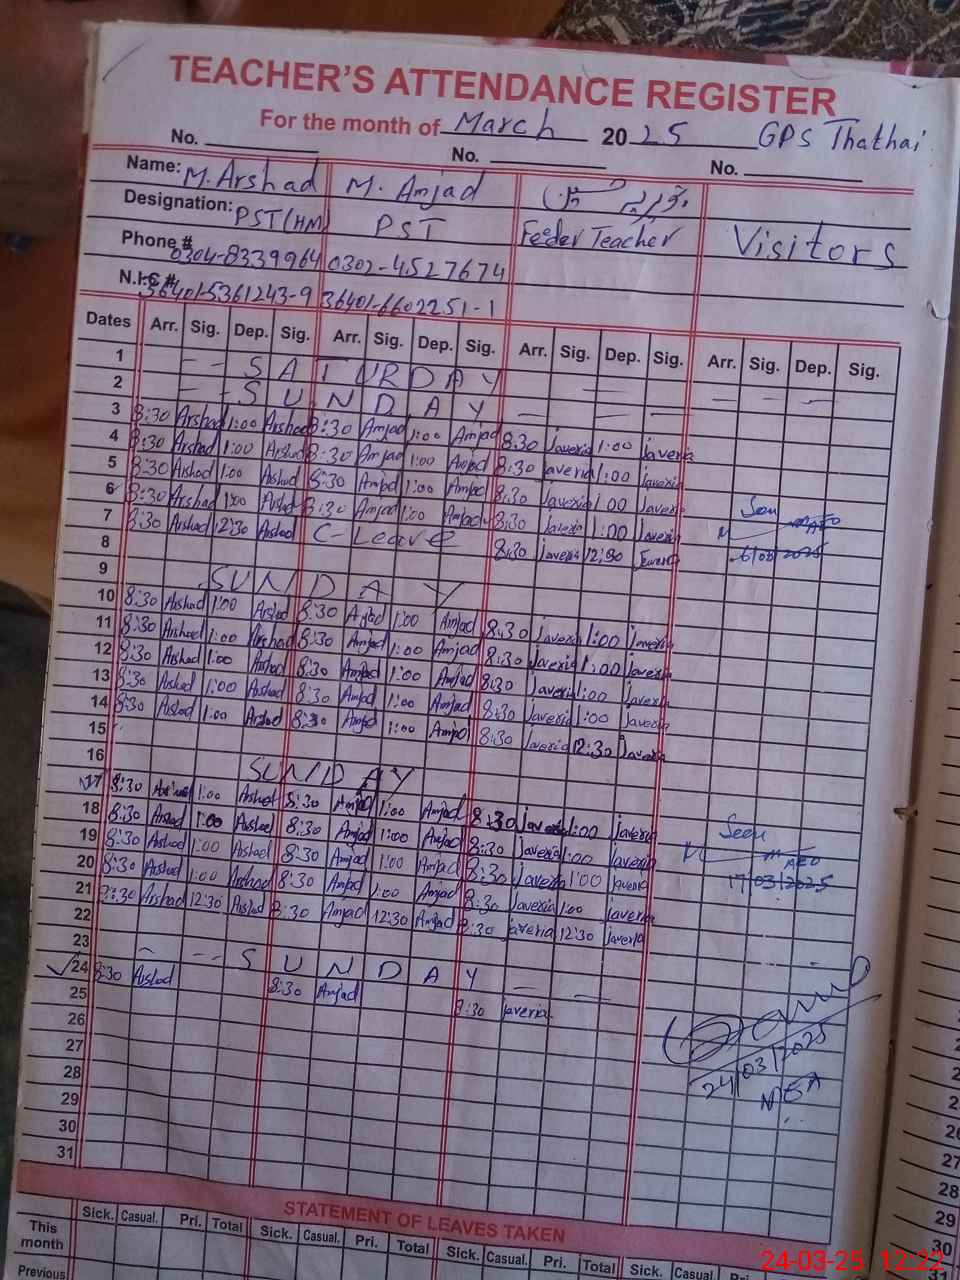 TEACHER'S ATTENDANCE REGISTER
For the month of March 2025 GPS Thathai
No. No. No.
Name: M. Arshad M. Amjad
Designation: PST(HM) PST Feeder Teacher Visitors
Phone # 0304-8339964 0302-4527674
N.I.C # 364015361243-9 36401-6602251-1
Dates Arr. Sig. Dep. Sig. Arr. Sig. Dep. Sig. Arr. Sig. Dep. Sig. Arr. Sig. Dep. Sig.
1 -- SATURDAY
2 -- SUNDAY
3 8:30 Arshad 1:00 Arshad 8:30 Amjad 1:00 Amjad 8:30 javeria 1:00 javeria
4 8:30 Arshad 1:00 Arshad 8:30 Amjad 1:00 Amjad 8:30 javeria 1:00 javeria
5 8:30 Arshad 1:00 Arshad 8:30 Amjad 1:00 Amjad 8:30 javeria 1:00 javeria
6 8:30 Arshad 1:00 Arshad 8:30 Amjad 1:00 Amjad 8:30 javeria 1:00 javeria Seen AEO
7 8:30 Arshad 12:30 Arshad C-Leave 8:30 javeria 12:30 javeria 6/03/2025
8
9 SUNDAY
10 8:30 Arshad 1:00 Arshad 8:30 Amjad 1:00 Amjad 8:30 javeria 1:00 javeria
11 8:30 Arshad 1:00 Arshad 8:30 Amjad 1:00 Amjad 8:30 javeria 1:00 javeria
12 8:30 Arshad 1:00 Arshad 8:30 Amjad 1:00 Amjad 8:30 javeria 1:00 javeria
13 8:30 Arshad 1:00 Arshad 8:30 Amjad 1:00 Amjad 8:30 javeria 1:00 javeria
14 8:30 Arshad 1:00 Arshad 8:30 Amjad 1:00 Amjad 8:30 javeria 12:30 javeria
15
16 SUNDAY
17 8:30 Arshad 1:00 Arshad 8:30 Amjad 1:00 Amjad 8:30 javeria 1:00 javeria
18 8:30 Arshad 1:00 Arshad 8:30 Amjad 1:00 Amjad 8:30 javeria 1:00 javeria Seen
19 8:30 Arshad 1:00 Arshad 8:30 Amjad 1:00 Amjad 8:30 javeria 1:00 javeria AEO
20 8:30 Arshad 1:00 Arshad 8:30 Amjad 1:00 Amjad 8:30 javeria 1:00 javeria 17/03/2025
21 8:30 Arshad 12:30 Arshad 8:30 Amjad 12:30 Amjad 8:30 javeria 12:30 javeria
22
23 -- SUNDAY
24 8:30 Arshad 8:30 Amjad 8:30 javeria
25
26
27 24/03/2025
28 MEA
29
30
31
STATEMENT OF LEAVES TAKEN
Sick. Casual. Pri. Total Sick. Casual. Pri. Total Sick. Casual. Pri. Total Sick. Casual. Pri.
This month
Previous
24-03-25 12:22